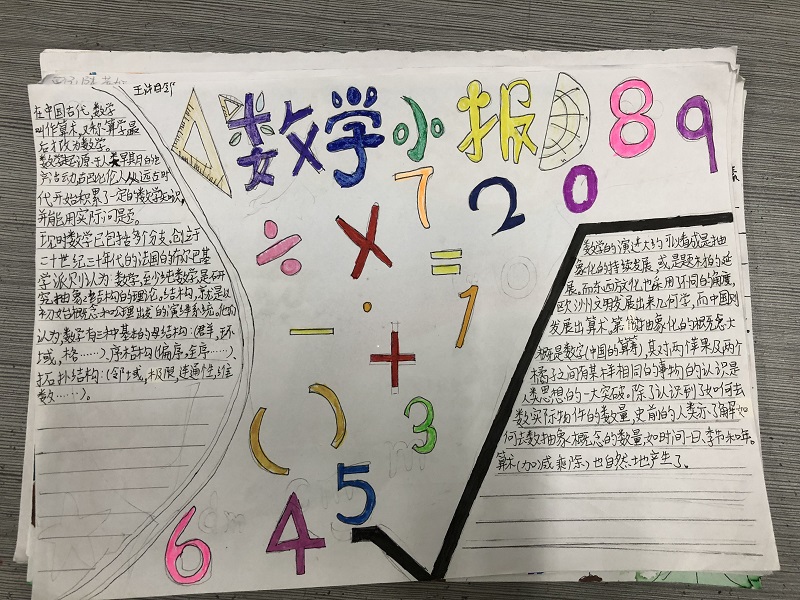 数学小报
在中国古代,数学
叫作算术,又称算学,最
后才改为数学。
数学起源于人类早期的生
产活动,古巴比伦人从远古时
代开始积累了一定的数学知识,
并能用实际问题。
现时数学已包括多个分支,创立于
二十世纪三十年代的法国的布尔巴基
学派则认为:数学,至少纯数学,是研
究抽象结构的理论。结构,就是以
初始概念和公理出发的演绎系统。他们
认为,数学有三种基本的母结构:(群,环,
域,格……)、序结构(偏序,全序……)、
拓扑结构:(邻域,极限,连通性,维
数……)。
8
9
7
2
0
÷
×
=
1
·
−
+
( )
3
5
4
6
数学的演进大约可以看成是抽
象化的持续发展,或是题材的延
展。而东西方文化也采用了不同的角度,
欧洲文明发展出来几何学,而中国则
发展出算术。第一个被抽象化的概念大
概是数字(中国的算筹),其对两个苹果及两个
橘子之间有某样相同的事物的认识是
人类思想的一大突破。除了认识到了如何去
数实际物件的数量,史前的人类亦了解如
何去数抽象概念的数量,如时间—日、季节和年。
算术(加减乘除)也自然地产生了。